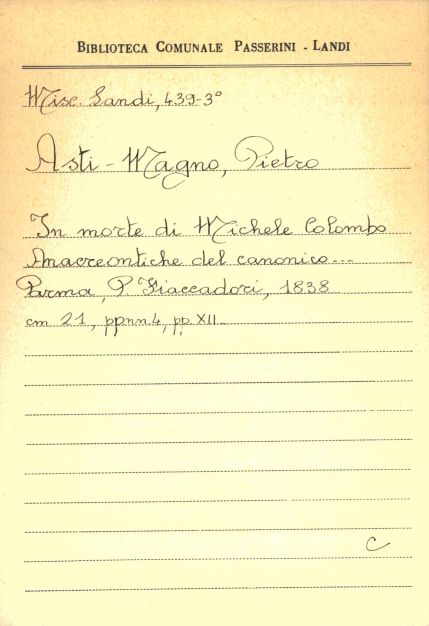 BIBLIOTECA COMUNALE PASSERINI - LANDI
Misc. Landi, 439-3°
Asti - Magno, Pietro
In morte di Michele Colombo
Anacreontiche del canonico ---
Parma, P. Fiaccadori, 1838
cm 21, pp.nn.4, pp. XII.
C